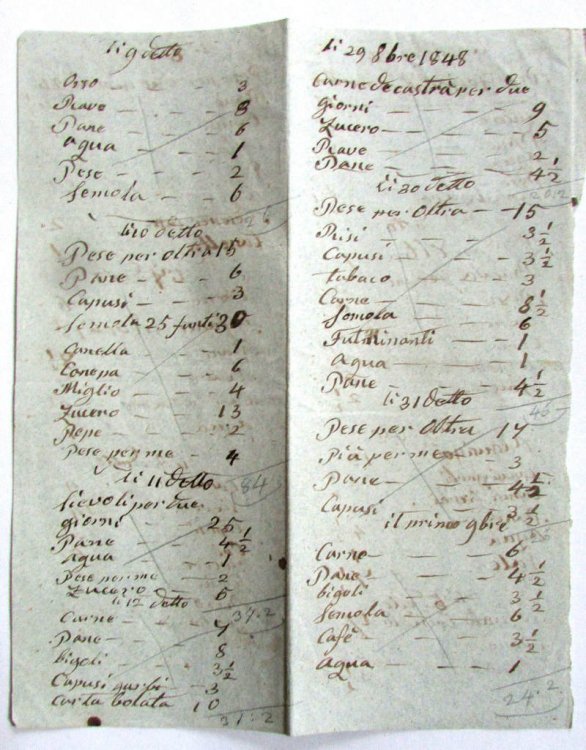 li 9 detto
Orzo — — — 3
Piave — — — 8
Pane — — — 6
Aqua — — — 1
Pese — — — 2
Semola — — 6
26
li 10 detto
Pese per Oltra 15
Pane — — — 6
Capusi — — 3
Semola 25 funti 30
Canella — — 1
Canepa — — 6
Miglio — — 4
Zucero — — 13
Pepe — — — 2
Pese per me — 4
84
li 11 detto
Sievoli per due
giorni — — — 25
Pane — — — 4 1/2
Aqua — — — 1
Pese per me — — 2
Zucero — — 5
37.2
li 12 detto
Carne — — — 7
Pane — — — 8
bigoli — — — 3 1/2
Capusi garbi — 3
Carta bolata 10
31.2
li 29 8bre 1848
Carne de castrà per due
giorni — — — 9
Zucero — — — 5
Piave — — — 2
Pane — — — 4 1/2
20.2
li 30 detto
Pese per Oltra — 15
Risi — — — 3 1/2
Capusi — — — 3 1/2
tabaco — — — 3
Carne — — — 8 1/2
Semola — — — 6
Fulminanti — 1
aqua — — — 1
Pane — — — 4 1/2
46
li 31 detto
Pese per Oltra 17
Più per me — 3
Pane — — — 4 1/2
Capusi — — 3 1/2
il primo 9bre
Carne — — — 6
Pane — — — 4 1/2
bigoli — — — 3 1/2
Semola — — 6
Cafè — — — 3 1/2
aqua — — — 1
24.2